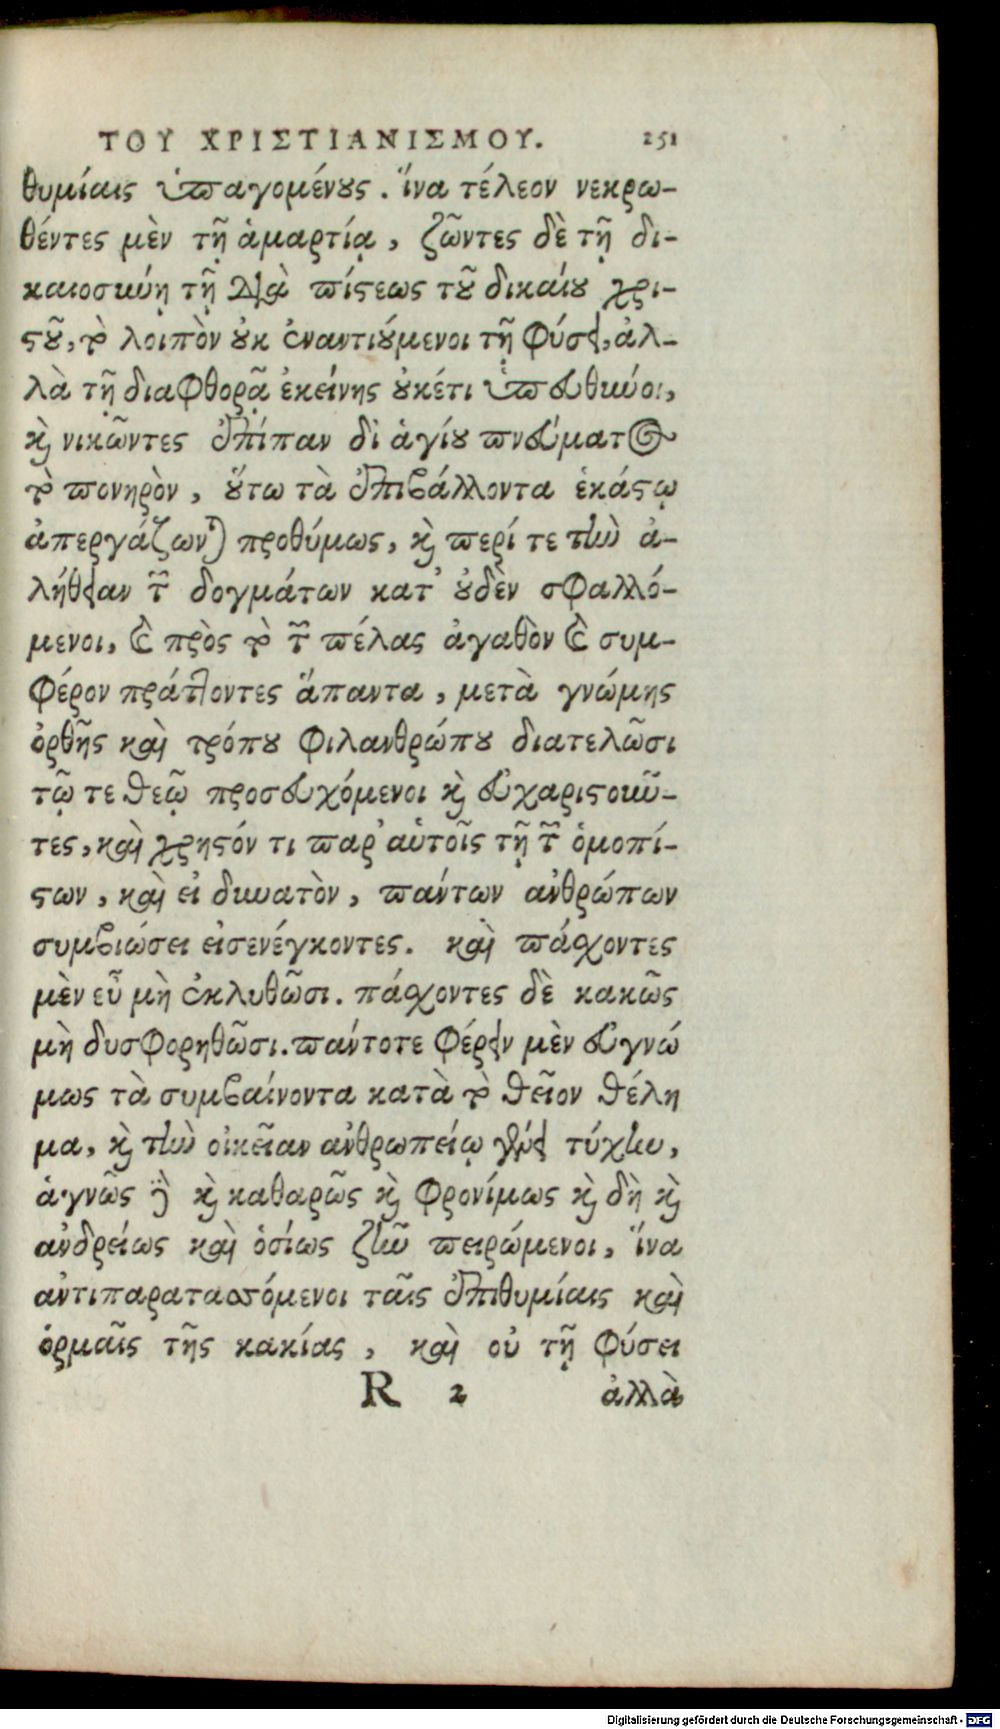 ΤΟΥ ΧΡΙΣΤΙΑΝΙΣΜΟΥ. 251
θυμίαις ὑπαγομένους. ἵνα τέλεον νεκρω-
θέντες μὲν τῇ ἁμαρτίᾳ, ζῶντες δὲ τῇ δι-
καιοσύνῃ τῇ διὰ πίστεως τοῦ δικαίου χρι-
στοῦ, τὸ λοιπὸν οὐκ ἐναντιούμενοι τῇ φύσει, ἀλ-
λὰ τῇ διαφθορᾷ ἐκείνης οὐκέτι ὑπευθύνοι,
καὶ νικῶντες ἐπίπαν δι ἁγίου πνεύματος
τὸ πονηρὸν, οὕτω τὰ ἐπιβάλλοντα ἑκάστῳ
ἀπεργάζωνται προθύμως, καὶ περί τε τὴν ἀ-
λήθειαν τῶν δογμάτων κατ' οὐδὲν σφαλλό-
μενοι, καὶ πρὸς τὸ τῶν πέλας ἀγαθὸν καὶ συμ-
φέρον πράττοντες ἅπαντα, μετὰ γνώμης
ὀρθῆς καὶ τρόπου φιλανθρώπου διατελῶσι
τῷ τε θεῷ προσευχόμενοι καὶ εὐχαριστοῦν-
τες, καὶ χρηστόν τι παρ' αὑτοῖς τῇ τῶν ὁμοπί-
στων, καὶ εἰ δυνατὸν, πάντων ἀνθρώπων
συμβιώσει εἰσενέγκοντες. καὶ πάσχοντες
μὲν εὖ μὴ ἐκλυθῶσι. πάσχοντες δὲ κακῶς
μὴ δυσφορηθῶσι. πάντοτε φέρειν μὲν εὐγνώ
μως τὰ συμβαίνοντα κατὰ τὸ θεῖον θέλη
μα, καὶ τὴν οἰκεῖαν ἀνθρωπείῳ γένει τύχην,
ἁγνῶς δὲ καὶ καθαρῶς καὶ φρονίμως καὶ δὴ καὶ
ἀνδρείως καὶ ὁσίως ζῆν πειρώμενοι, ἵνα
ἀντιπαρατασσόμενοι ταῖς ἐπιθυμίαις καὶ
ὁρμαῖς τῆς κακίας, καὶ οὐ τῇ φύσει
R 2 ἀλλὰ
Digitalisierung gefördert durch die Deutsche Forschungsgemeinschaft - DFG